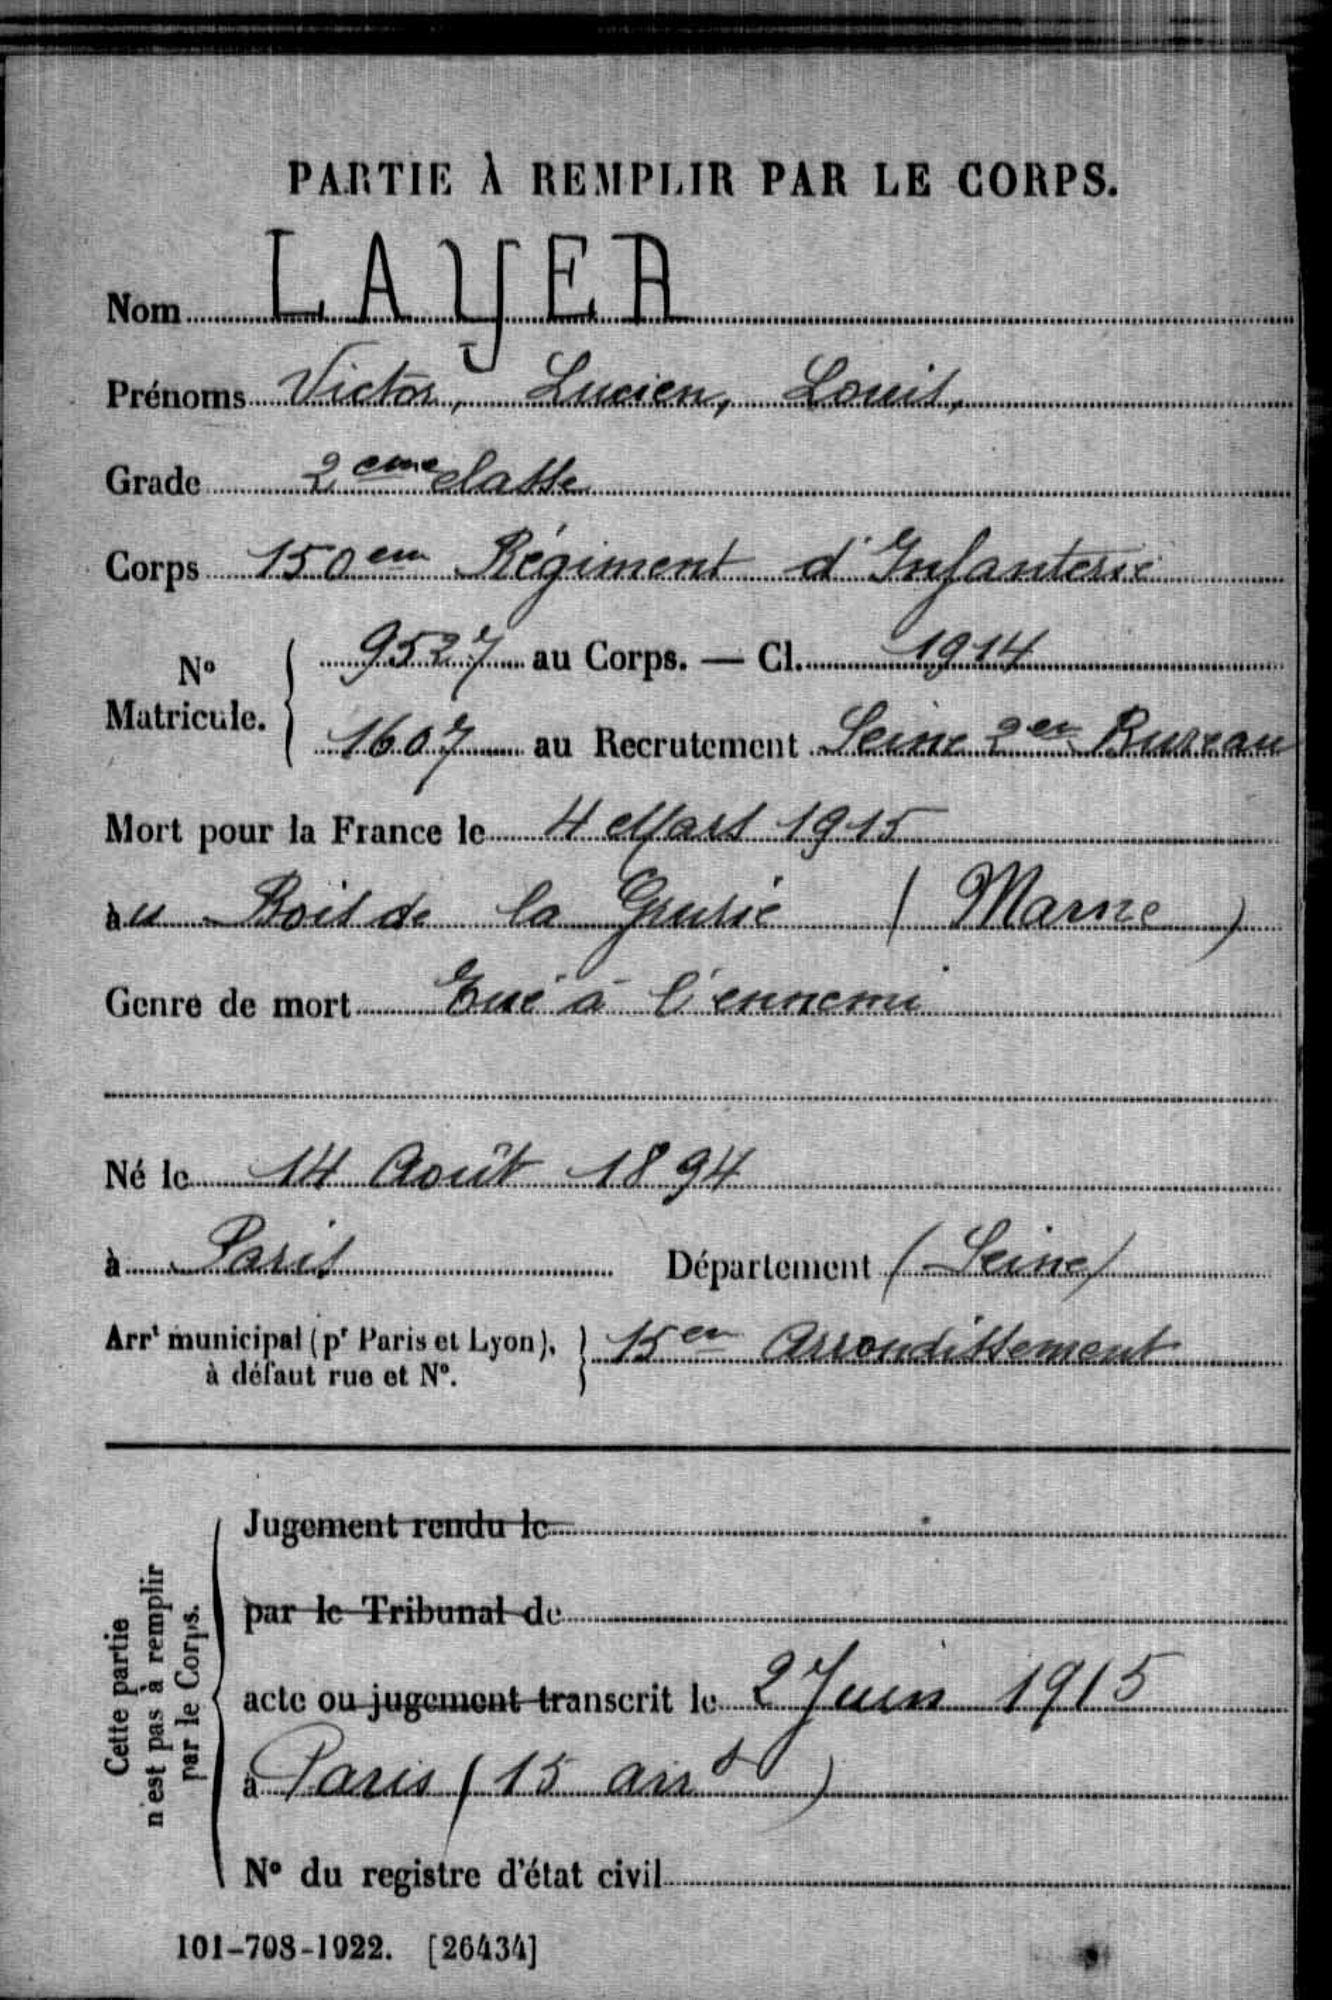 PARTIE À REMPLIR PAR LE CORPS.
Nom LAYER
Prénoms Victor, Lucien, Louis,
Grade 2eme classe
Corps 150em Régiment d'Infanterie
N° Matricule. 9527 au Corps. — Cl. 1914
1607 au Recrutement Seine 2er Bureau
Mort pour la France le 4 Mars 1915
au Bois de la Grurie (Marne)
Genre de mort Tué à l'ennemi
Né le 14 Août 1894
à Paris Département (Seine)
Arrt municipal (pr Paris et Lyon), à défaut rue et N°. 15em Arrondissement
Cette partie n'est pas à remplir par le Corps.
Jugement rendu le
par le Tribunal de
acte ou jugement transcrit le 2 Juin 1915
à Paris (15 arrt)
N° du registre d'état civil
101-708-1922. [26434]